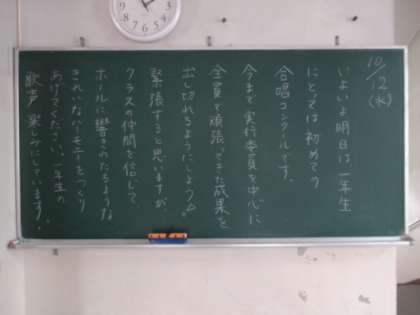 10/12(水)
いよいよ明日は一年生
にとっては初めての
合唱コンクールです。
今まで実行委員を中心に
全員で頑張ってきた成果を
出し切れるようにしよう。
緊張すると思いますが、
クラスの仲間を信じて、
ホールに響きわたるような
きれいなハーモニーをつくり
あげてください。一年生の
歌声 楽しみにしています。